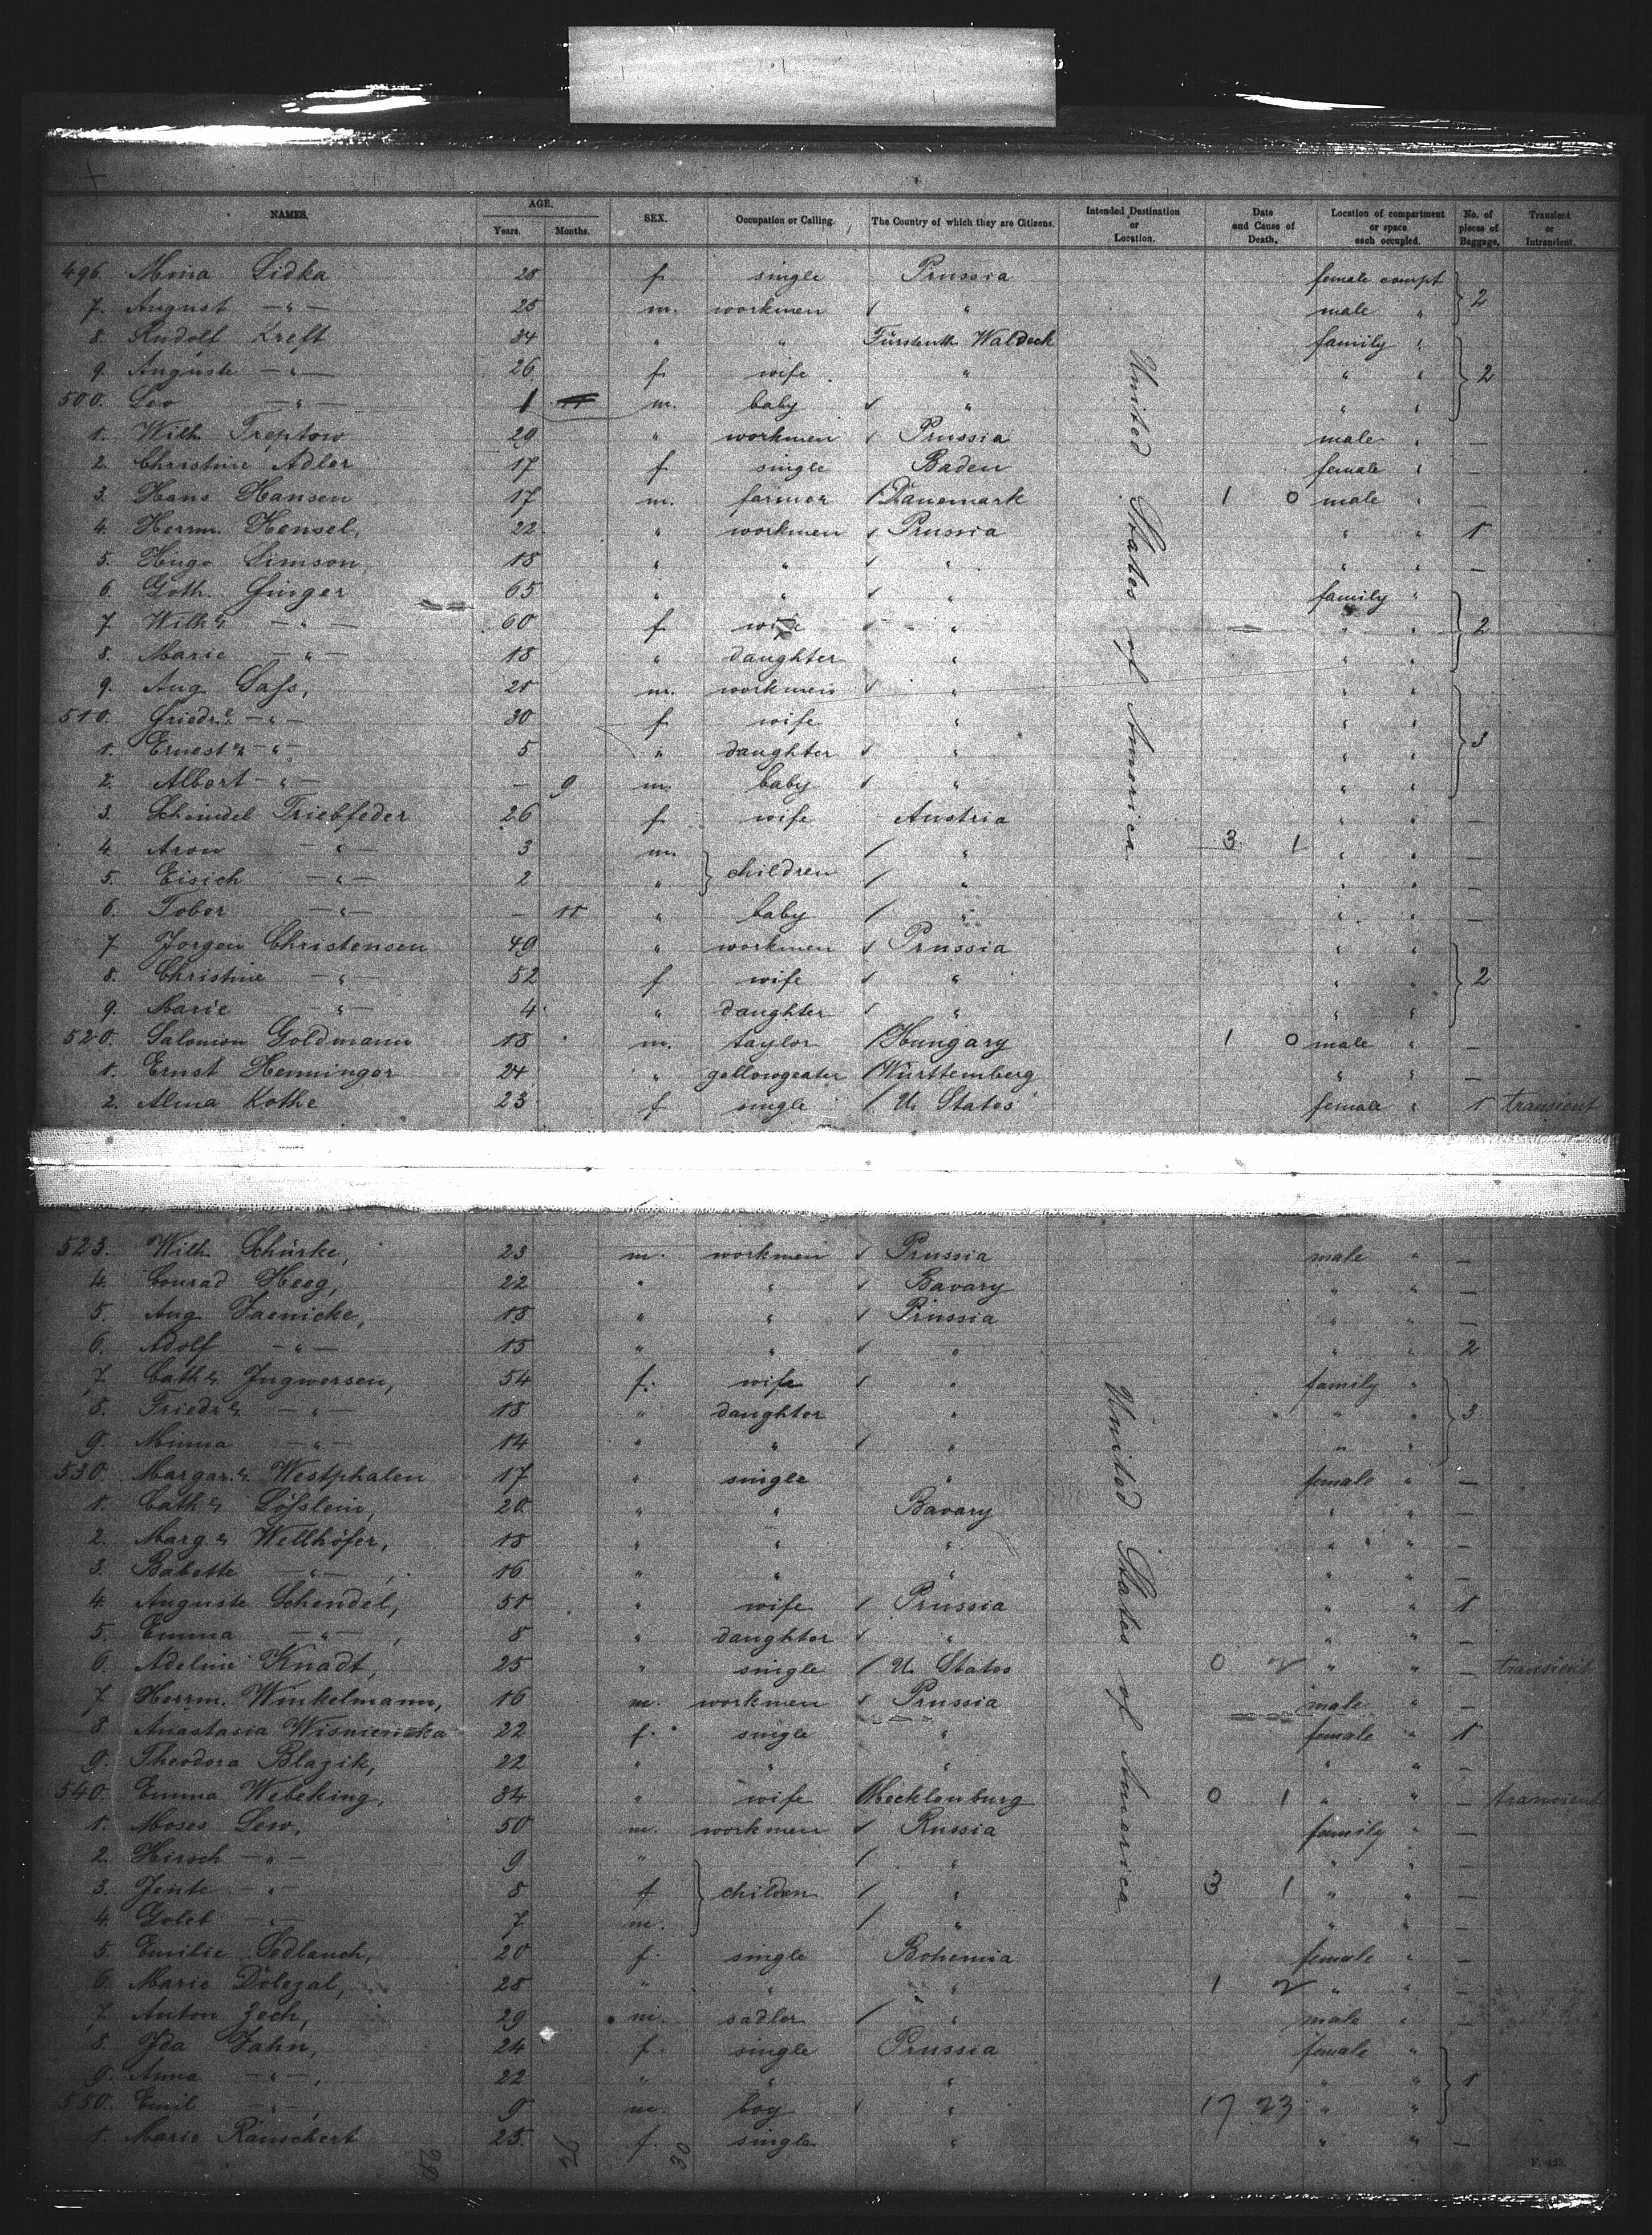 NAMES. AGE. Years. Months. SEX. Occupation or Calling. The Country of which they are Citizens. Intended Destination or Location. Date and Cause of Death. Location of compartment or space each occupied. No. of pieces of Baggage. Transient or Intransient.
496. Mina Lidka 28 f. single Prussia female compt
7. August —"— 25 m. workmen " male " 2
8. Rudolf Kreft 34 " " Fürstenth Waldeck family "
9. Auguste —"— 26 f. wife " " " 2
500. Leo —"— 1 m. baby " " "
1. Wilh. Treptow 29 " workmen Prussia male " —
2. Christine Adler 17 f. single Baden female " —
3. Hans Hansen 17 m. farmer Dänemark 1 0 male " —
4. Herrm. Hensel, 22 " workmen Prussia " " 1
5. Hugo Simson, 18 " " " " " —
6. Goth. Ginger 65 " " " family "
7. Wilh. —"— 60 f. wife " " " 2
8. Marie —"— 18 " daughter " " "
9. Aug. Sass, 21 m. workmen " " "
510. Friedr. —"— 30 f. wife " " "
1. Ernest. —"— 5 " daughter " " " 3
2. Albert —"— — 9 m. baby " " "
3. Scheindel Triebfeder 26 f. wife Austria " " —
4. Aron —"— 3 m. " 3 1 " " —
5. Eisich —"— 2 " children " " " —
6. Tobor —"— — 11 " baby " " " —
7. Jorgen Christensen 49 " workmen Prussia " "
8. Christine —"— 52 f. wife " " " 2
9. Marie —"— 4 " daughter " " "
520. Salomon Goldmann 18 m. taylor Hungary 1 0 male " —
1. Ernst Henninger 24 " gellowgeater Württemberg " " —
2. Alma Kothe 23 f. single U. States female " 1 transient
United States of America
523. Wilh. Schürke, 23 m. workmen Prussia male " —
4. Conrad Heeg, 22 " " Bavary " " —
5. Aug. Jaenicke, 18 " " Prussia " " —
6. Adolf —"— 15 " " " " " 2
7. Cath. Ingwersen, 54 f. wife " family "
8. Friedr. —"— 18 " daughter " " " 3
9. Minna —"— 14 " " " " "
530. Margar. Westphalen 17 " single " female " —
1. Cath. Lösslein, 20 " " Bavary " " —
2. Marg. Wellhöfer, 18 " " " " " —
3. Babette —"—, 16 " " " " " —
4. Auguste Schendel, 51 " wife Prussia " " 1
5. Emma —"—, 8 " daughter " " " —
6. Adeline Knadt, 25 " single U. States 0 2 " " — transient
7. Herrm. Winkelmann, 16 m. workmen Prussia male " —
8. Anastasia Wisniewska 22 f. single " female " 1
9. Theodora Blazik, 22 " " " " " —
540. Emma Webeking, 34 " wife Mecklenburg 0 1 " " — transient
1. Moses Lew, 50 m. workmen Russia family " —
2. Hirsch —"— 9 " " " " —
3. Jente —"— 8 f children " 3 1 " " —
4. Goleb —"— 7 m. " " " —
5. Emilie Sedlauch, 20 f. single Bohemia female " —
6. Marie Dolezal, 28 " " " 1 2 " " —
7. Anton Zech, 29 m. sadler " male " —
8. Ida Jahn, 24 f. single Prussia female "
9. Anna —"—, 22 " " " " " 1
550. Emil —"—, 9 m. boy " 17 23 " "
1. Marie Rauschert 25. f. single " " " —
United States of America
26 30
F. 423.